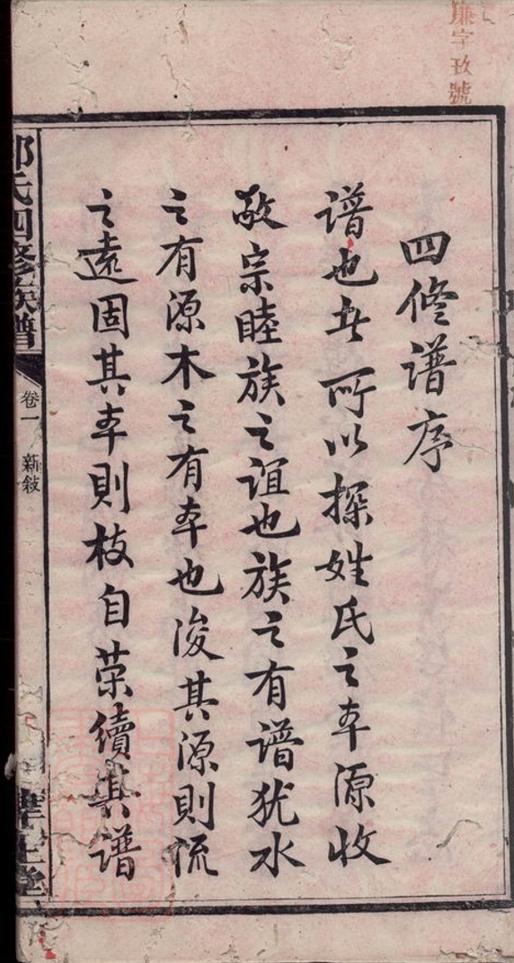 廉字玫號
四修谱序
谱也者所以探姓氏之本源收
敬宗睦族之誼也族之有谱犹水
之有源木之有本也浚其源则流
之遠固其本则枝自荣續其谱
氏四修族譜
卷一
新敍